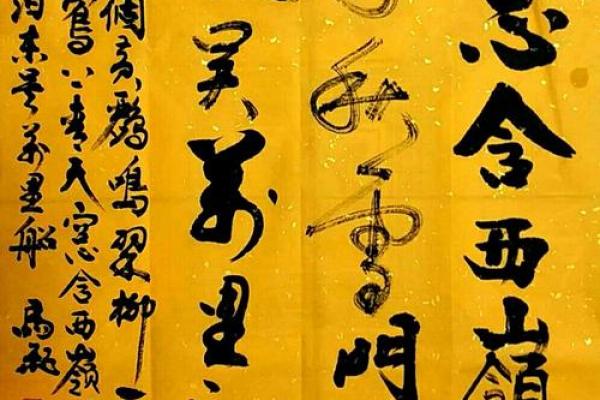 窓含西嶺
秋雪門
吳萬里
個黃鸝鳴翠柳一
鷺上青天窓含西嶺
泊東吳萬里船